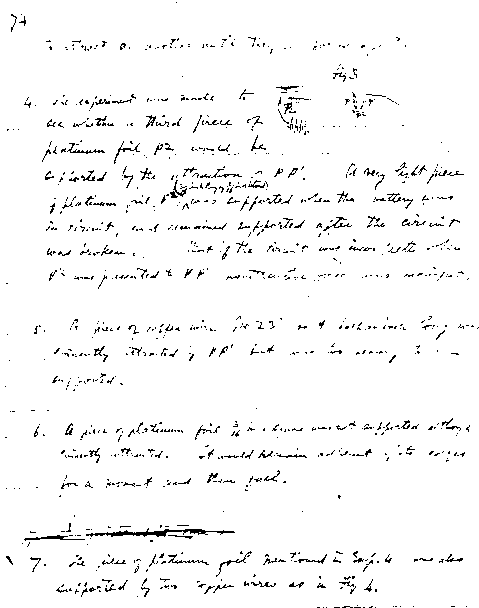 74
attract one another until they
Fig 5
4. An experiment was made to
see whether a third piece of
platinum foil P2 would be
supported by the attraction of PP'. A very light piece
of platinum foil P2 was supported when the battery was
in circuit, and remained supported after the circuit
was broken. But if the circuit was when
P2 was presented to PP' no attractive was manifest.
5. A piece of copper wire No 23 long was
evidently attracted by PP' but was too heavy to be
supported.
6. A piece of platinum foil square was not supported although
evidently attracted. It would remain adherent by its edges
for a moment and then fall.
7. The piece of platinum foil mentioned in Exp. 4 was also
supported by two copper wires as in Fig 4.